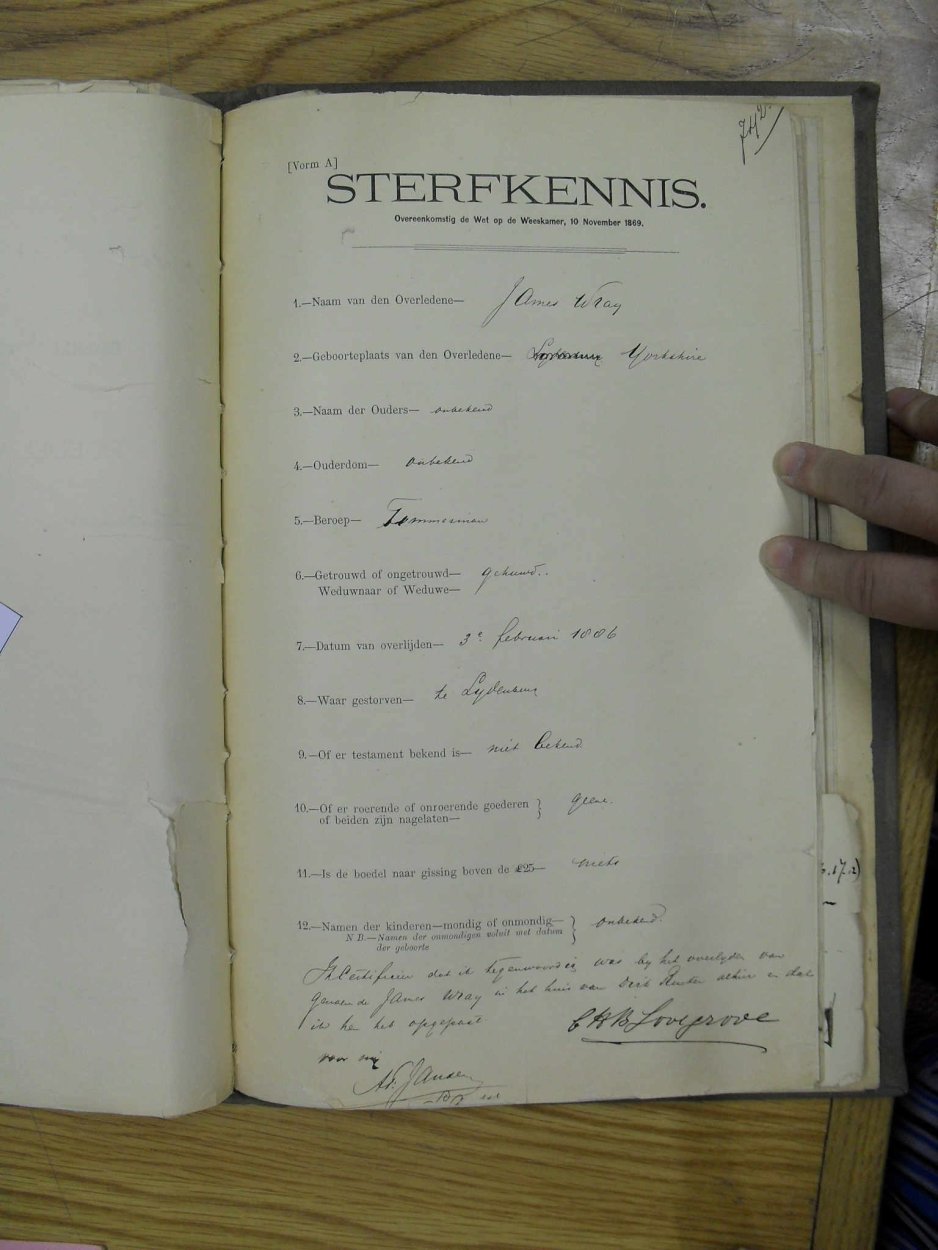 742
[Vorm A]
STERFKENNIS.
Overeenkomstig de Wet op de Weeskamer, 10 November 1869.
1.—Naam van den Overledene— James Wray
2.—Geboorteplaats van den Overledene— Yorkshire
3.—Naam der Ouders— onbekend
4.—Ouderdom— onbekend
5.—Beroep— Timmerman
6.—Getrouwd of ongetrouwd— gehuwd.
Weduwnaar of Weduwe—
7.—Datum van overlijden— 3e februari 1886
8.—Waar gestorven— te Lydenburg
9.—Of er testament bekend is— niet bekend
10.—Of er roerende of onroerende goederen } geene.
of beiden zijn nagelaten—
11.—Is de boedel naar gissing boven de £25— niets
12.—Namen der kinderen—mondig of onmondig— } onbekend.
N B.—Namen der onmondigen voluit met datum
der geboorte
Ik Certificeer dat ik tegenwoordig was by het overlyden van
genoemde James Wray in het huis van Dirk alhier en dat
ik hem heb opgepast
C H B Lovegrove
voor my
Jansen